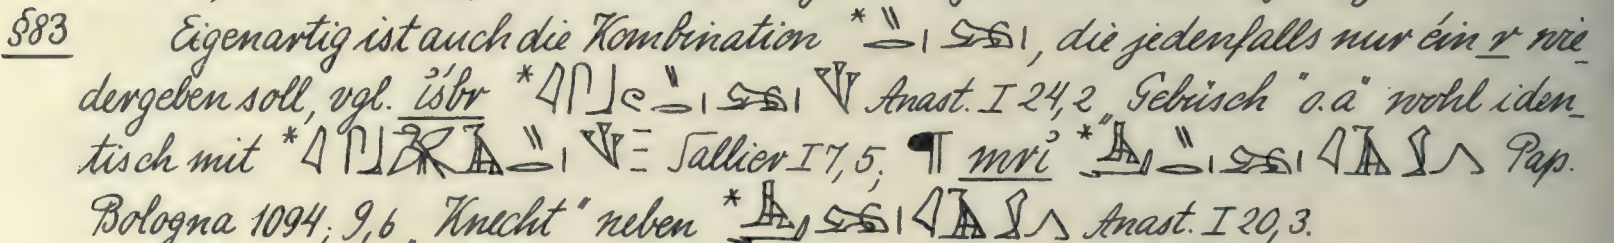 §83 Eigenartig ist auch die Kombination *, die jedenfalls nur éin r wie-
dergeben soll, vgl. i҆śbr * Anast. I 24,2 „Gebüsch" o.ä" wohl iden-
tisch mit * Sallier I 7,5; ¶ mri҆ * Pap.
Bologna 1094; 9,6 „Knecht" neben * Anast. I 20,3.